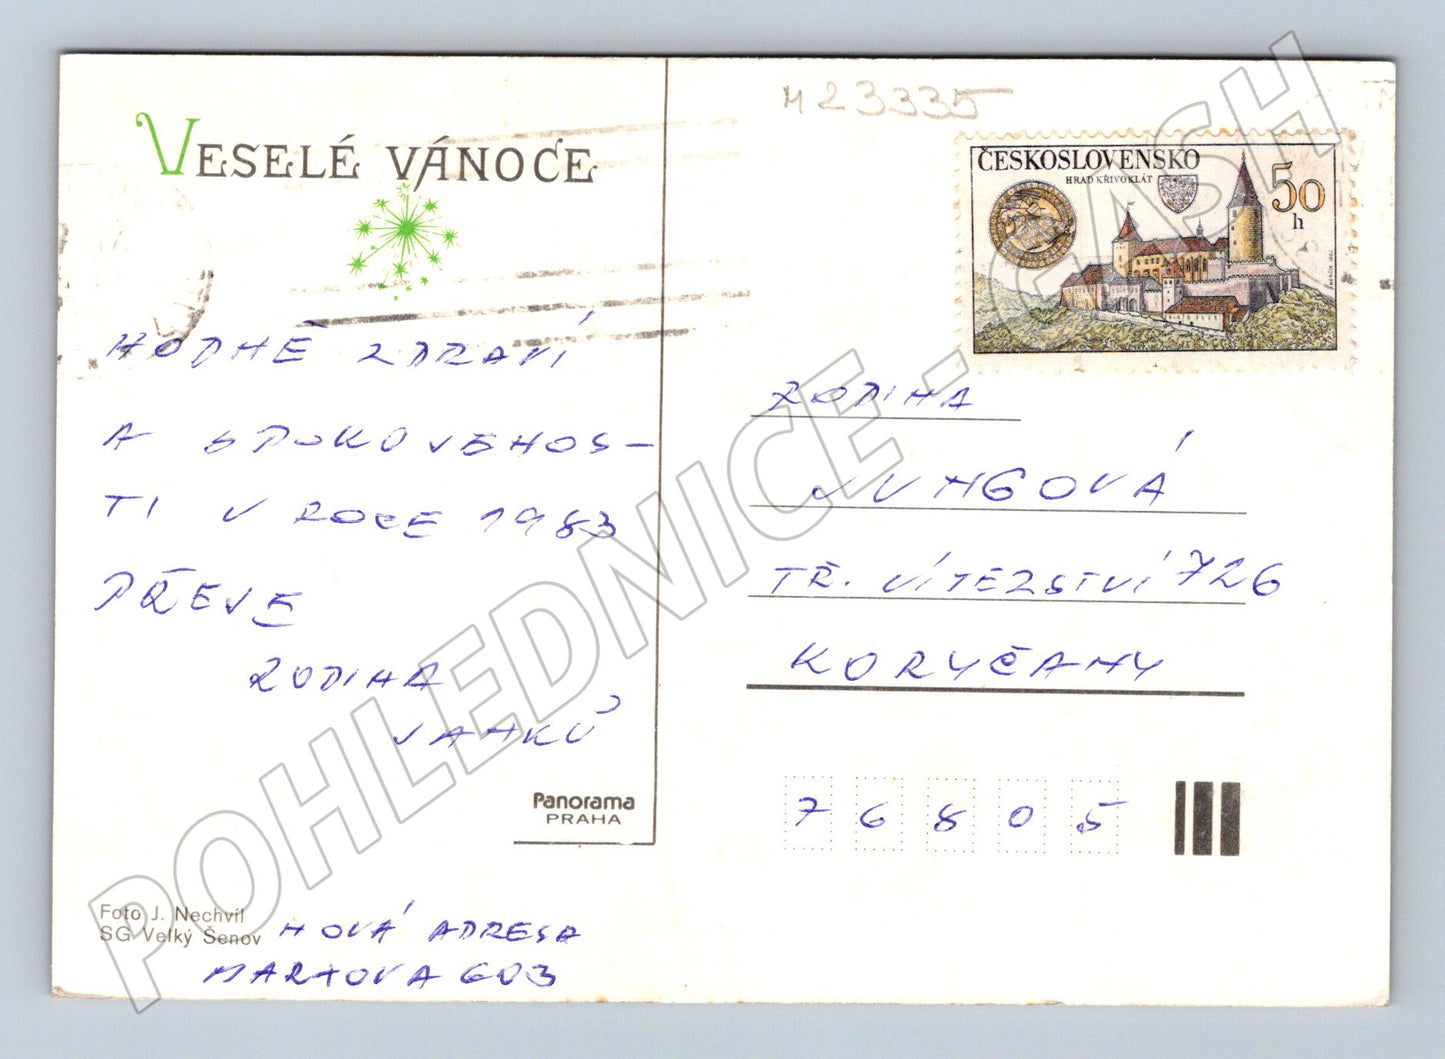 M 23335
VESELÉ VÁNOCE
ČESKOSLOVENSKO
HRAD KŘIVOKLÁT
50
h
HODNĚ ZDRAVÍ
A SPOKOJENOS-
TI V ROCE 1983
PŘEJE
RODINA
VAŇKŮ
RODINA
JUNGOVÁ
TŘ. VÍTEZSTVÍ 726
KORYČANY
76805
Panorama
PRAHA
Foto J. Nechvíl
SG Velký Šenov
NOVÁ ADRESA
603
POHLEDNICE - CASH